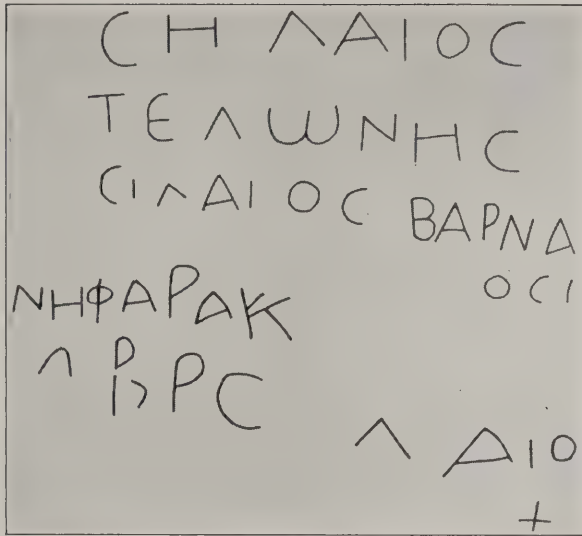 CΗΛΑΙΟC
ΤΕΛωΝΗC
CΙΛΑΙΟC ΒΑΡΝΑ
ΟCΙ
ΝΗΦΑΡΑΚ
ΛΑΙΟ
+